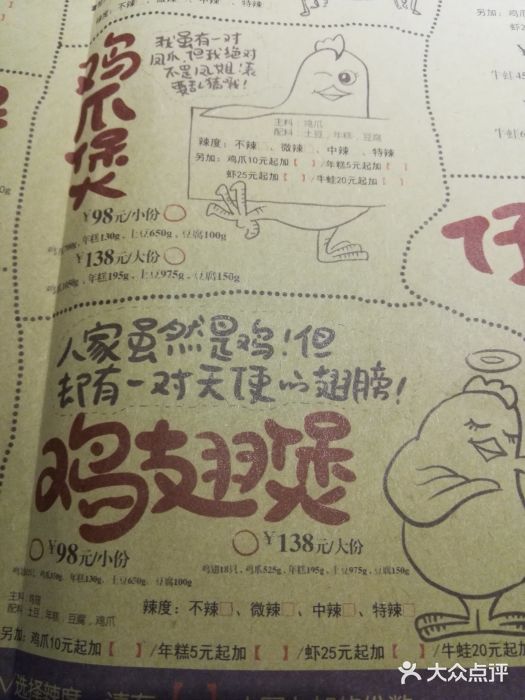 不辣□、微辣□、中辣□、特辣
另加:鸡爪10元起加
虾25元起加
鸡爪煲
我虽有一对
凤爪,但我绝对
不是凤姐,表
要乱猜哦!
主料:鸡爪
配料:土豆、年糕、豆腐
辣度:不辣□、微辣□、中辣□、特辣
另加:鸡爪10元起加【 】/年糕5元起加【 】
虾25元起加【 】/牛蛙20元起加【 】
¥98元/小份
年糕130g、土豆650g、豆腐100g
¥138元/大份
年糕195g、土豆975g、豆腐150g
牛虾
仔
人家虽然是鸡!但
却有一对天使的翅膀!
鸡翅煲
¥98元/小份
¥138元/大份
年糕130g、土豆650g、豆腐100g
鸡翅18只、鸡爪525g、年糕195g、土豆975g、豆腐150g
主料:鸡翅
配料:土豆、年糕、豆腐、鸡爪
辣度:不辣□、微辣□、中辣□、特辣□
另加:鸡爪10元起加【 】/年糕5元起加【 】/虾25元起加【 】/牛蛙20元起加
选择辣度
大众点评